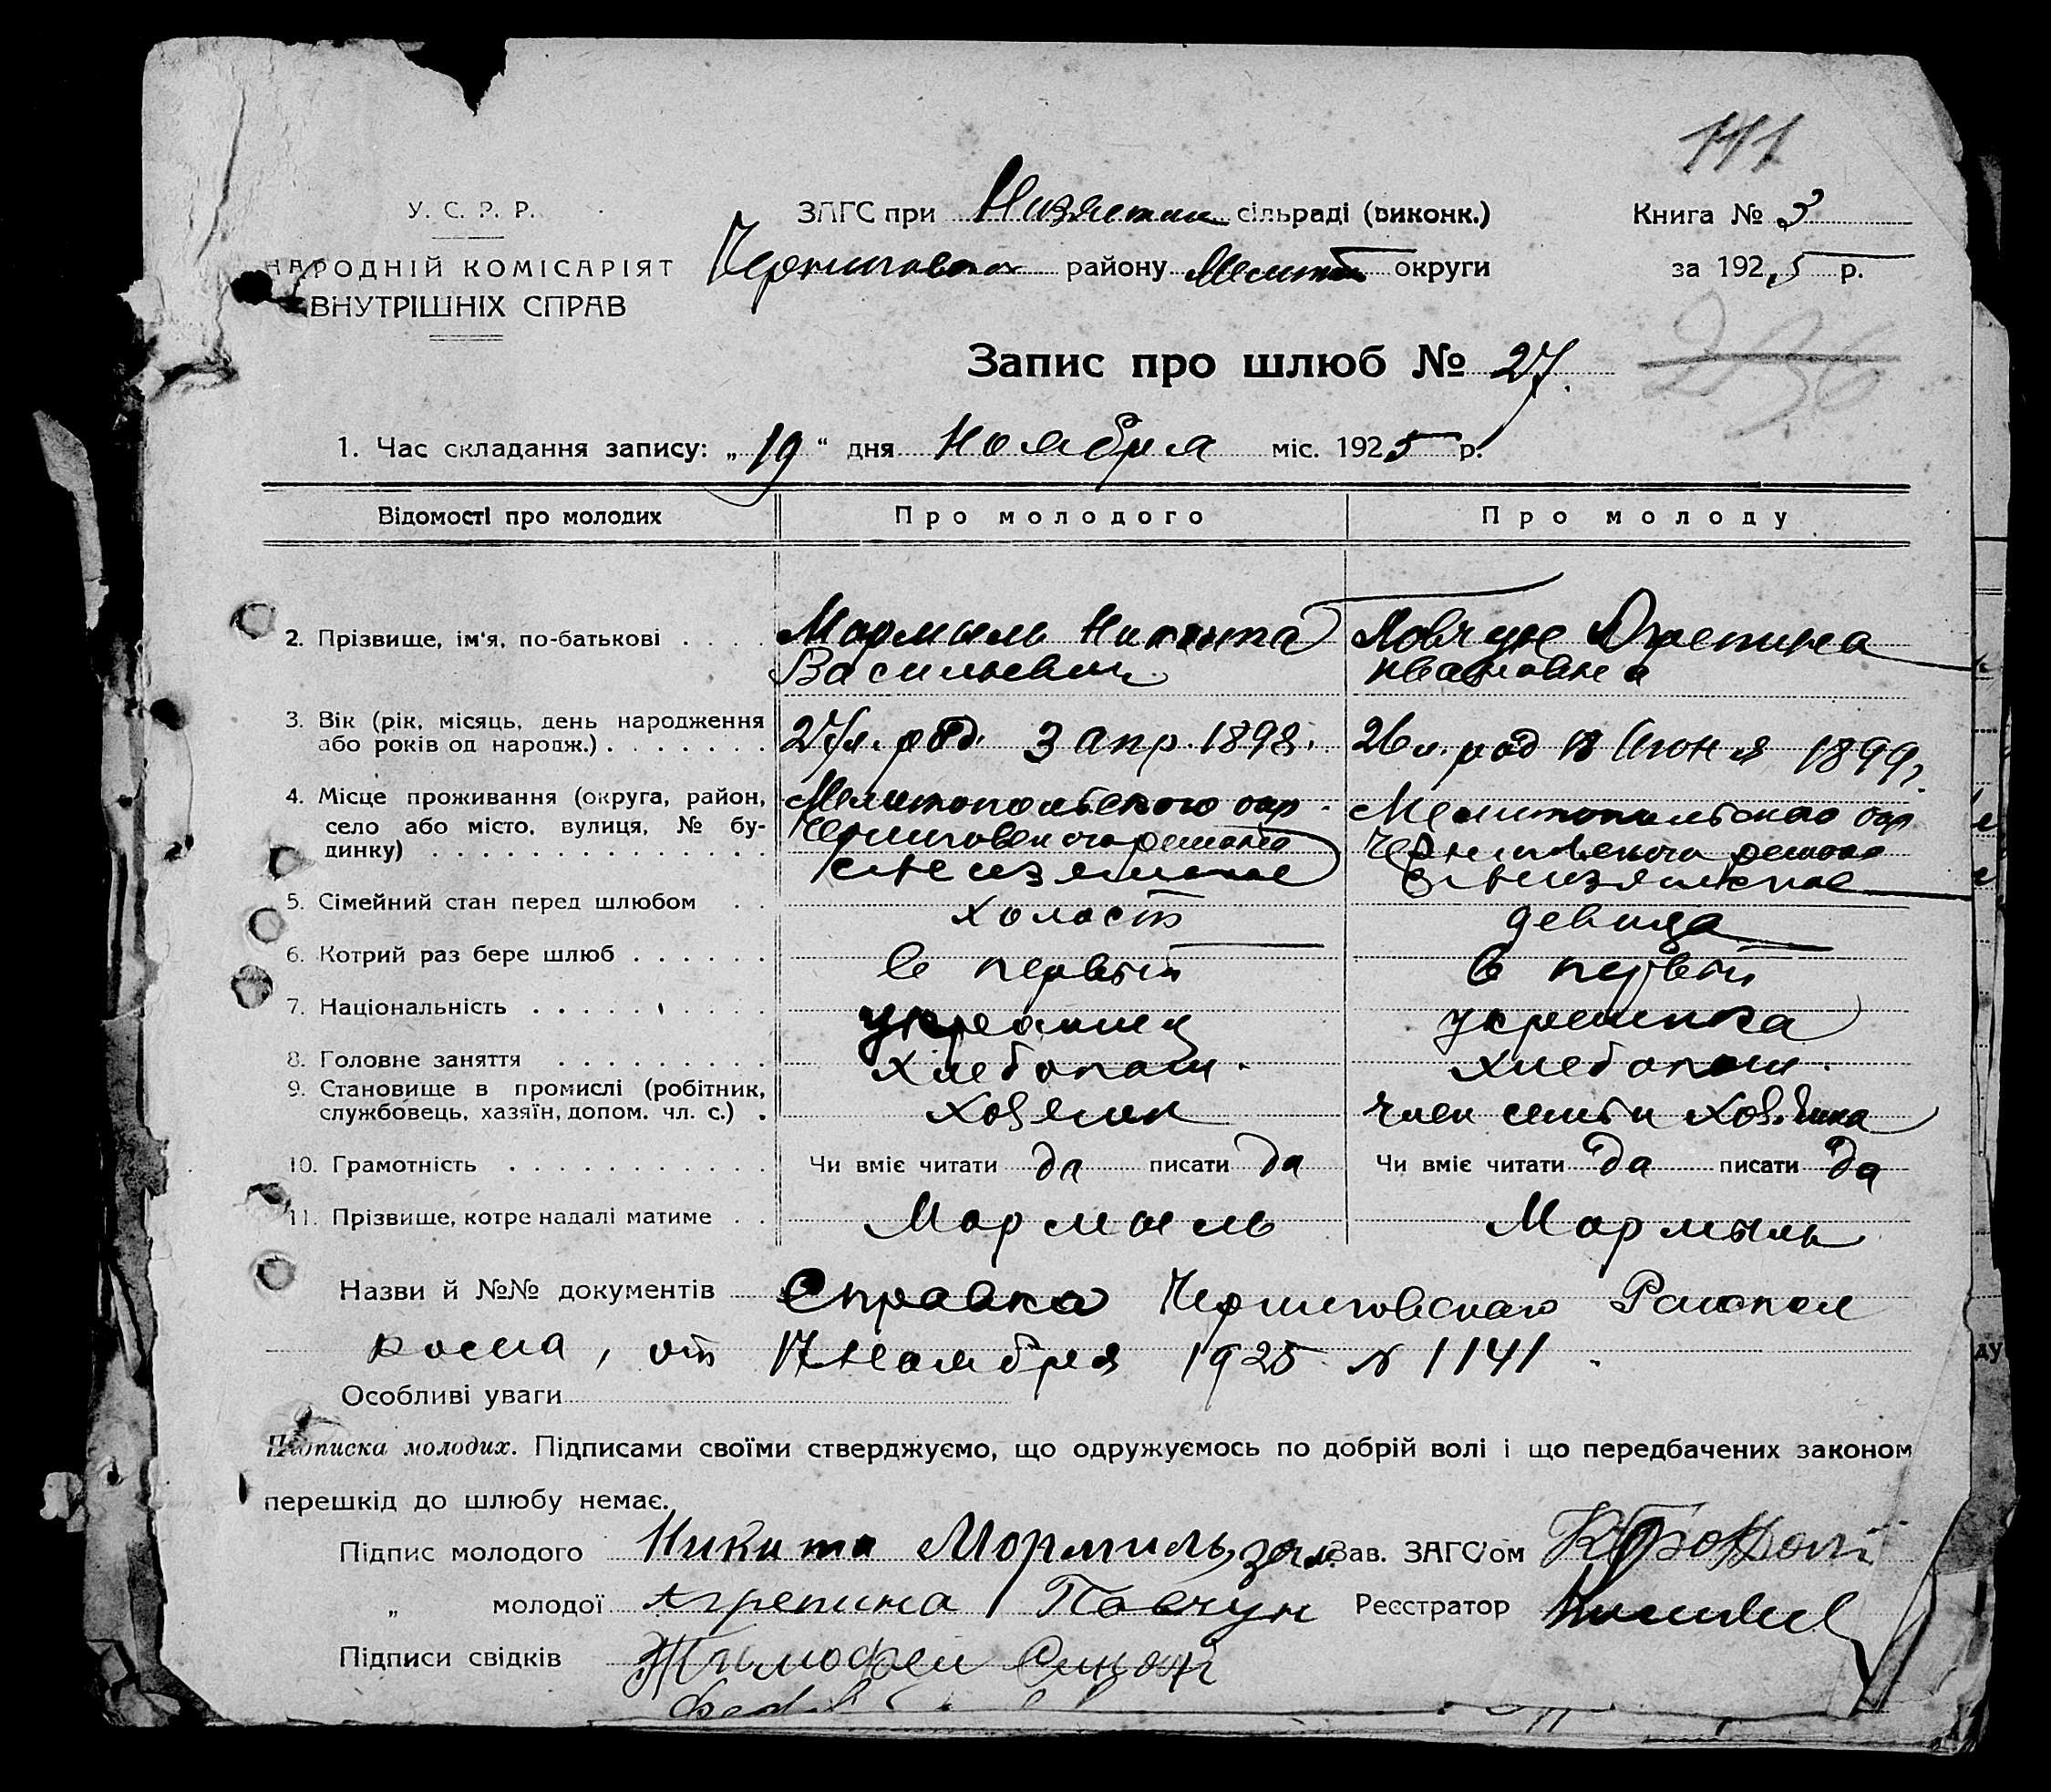 141
У. С. Р. Р.
НАРОДНІЙ КОМІСАРІЯТ
ВНУТРІШНІХ СПРАВ
ЗАГС при Низянском сільраді (виконк.)
Черниговском району Мелит округи
Книга № 3
за 1925 р.
236
Запис про шлюб № 27.
1. Час складання запису: „19“ дня Ноября міс. 1925 р.
Відомості про молодих Про молодого Про молоду
2. Прізвище, ім'я, по-батькові . . . . Мармыль Никита Павчун Агрепина
Васильевич Ивановна
3. Вік (рік, місяць, день народження
або років од нарож.) . . . . . . . 27 л. род. 3 апр. 1898. 26 л. род Июня 1899.
4. Місце проживання (округа, район, Мелитопольского окр. Мелитопольскаго окр
село або місто, вулиця, № бу- Черниговского района Черниговского района
динку) . . . . . . . . . . . . . .
5. Сімейний стан перед шлюбом . . холост девица
6. Котрий раз бере шлюб . . . . . . в первый в первый
7. Національність . . . . . . . . . . украинец украинка
8. Головне заняття . . . . . . . . . хлебопаш. хлебопаш.
9. Становище в промислі (робітник,
службовець, хазяїн, допом. чл. с.) . Хозяин член семьи Хозяина
10. Грамотність . . . . . . . . . . . . Чи вміє читати да писати да Чи вміє читати да писати да
11. Прізвище, котре надалі матиме . . Мармыль Мармыль
Назви й №№ документів Справка Черниговскаго
, от 17 Ноября 1925 № 1141.
Особливі уваги
Підписка молодих. Підписами своїми стверджуємо, що одружуємось по добрій волі і що передбачених законом
перешкід до шлюбу немає.
Підпис молодого Никита Мормиль Зав. ЗАГС'ом
„ молодої Агрепина Павчун Реєстратор
Підписи свідків Тимофей